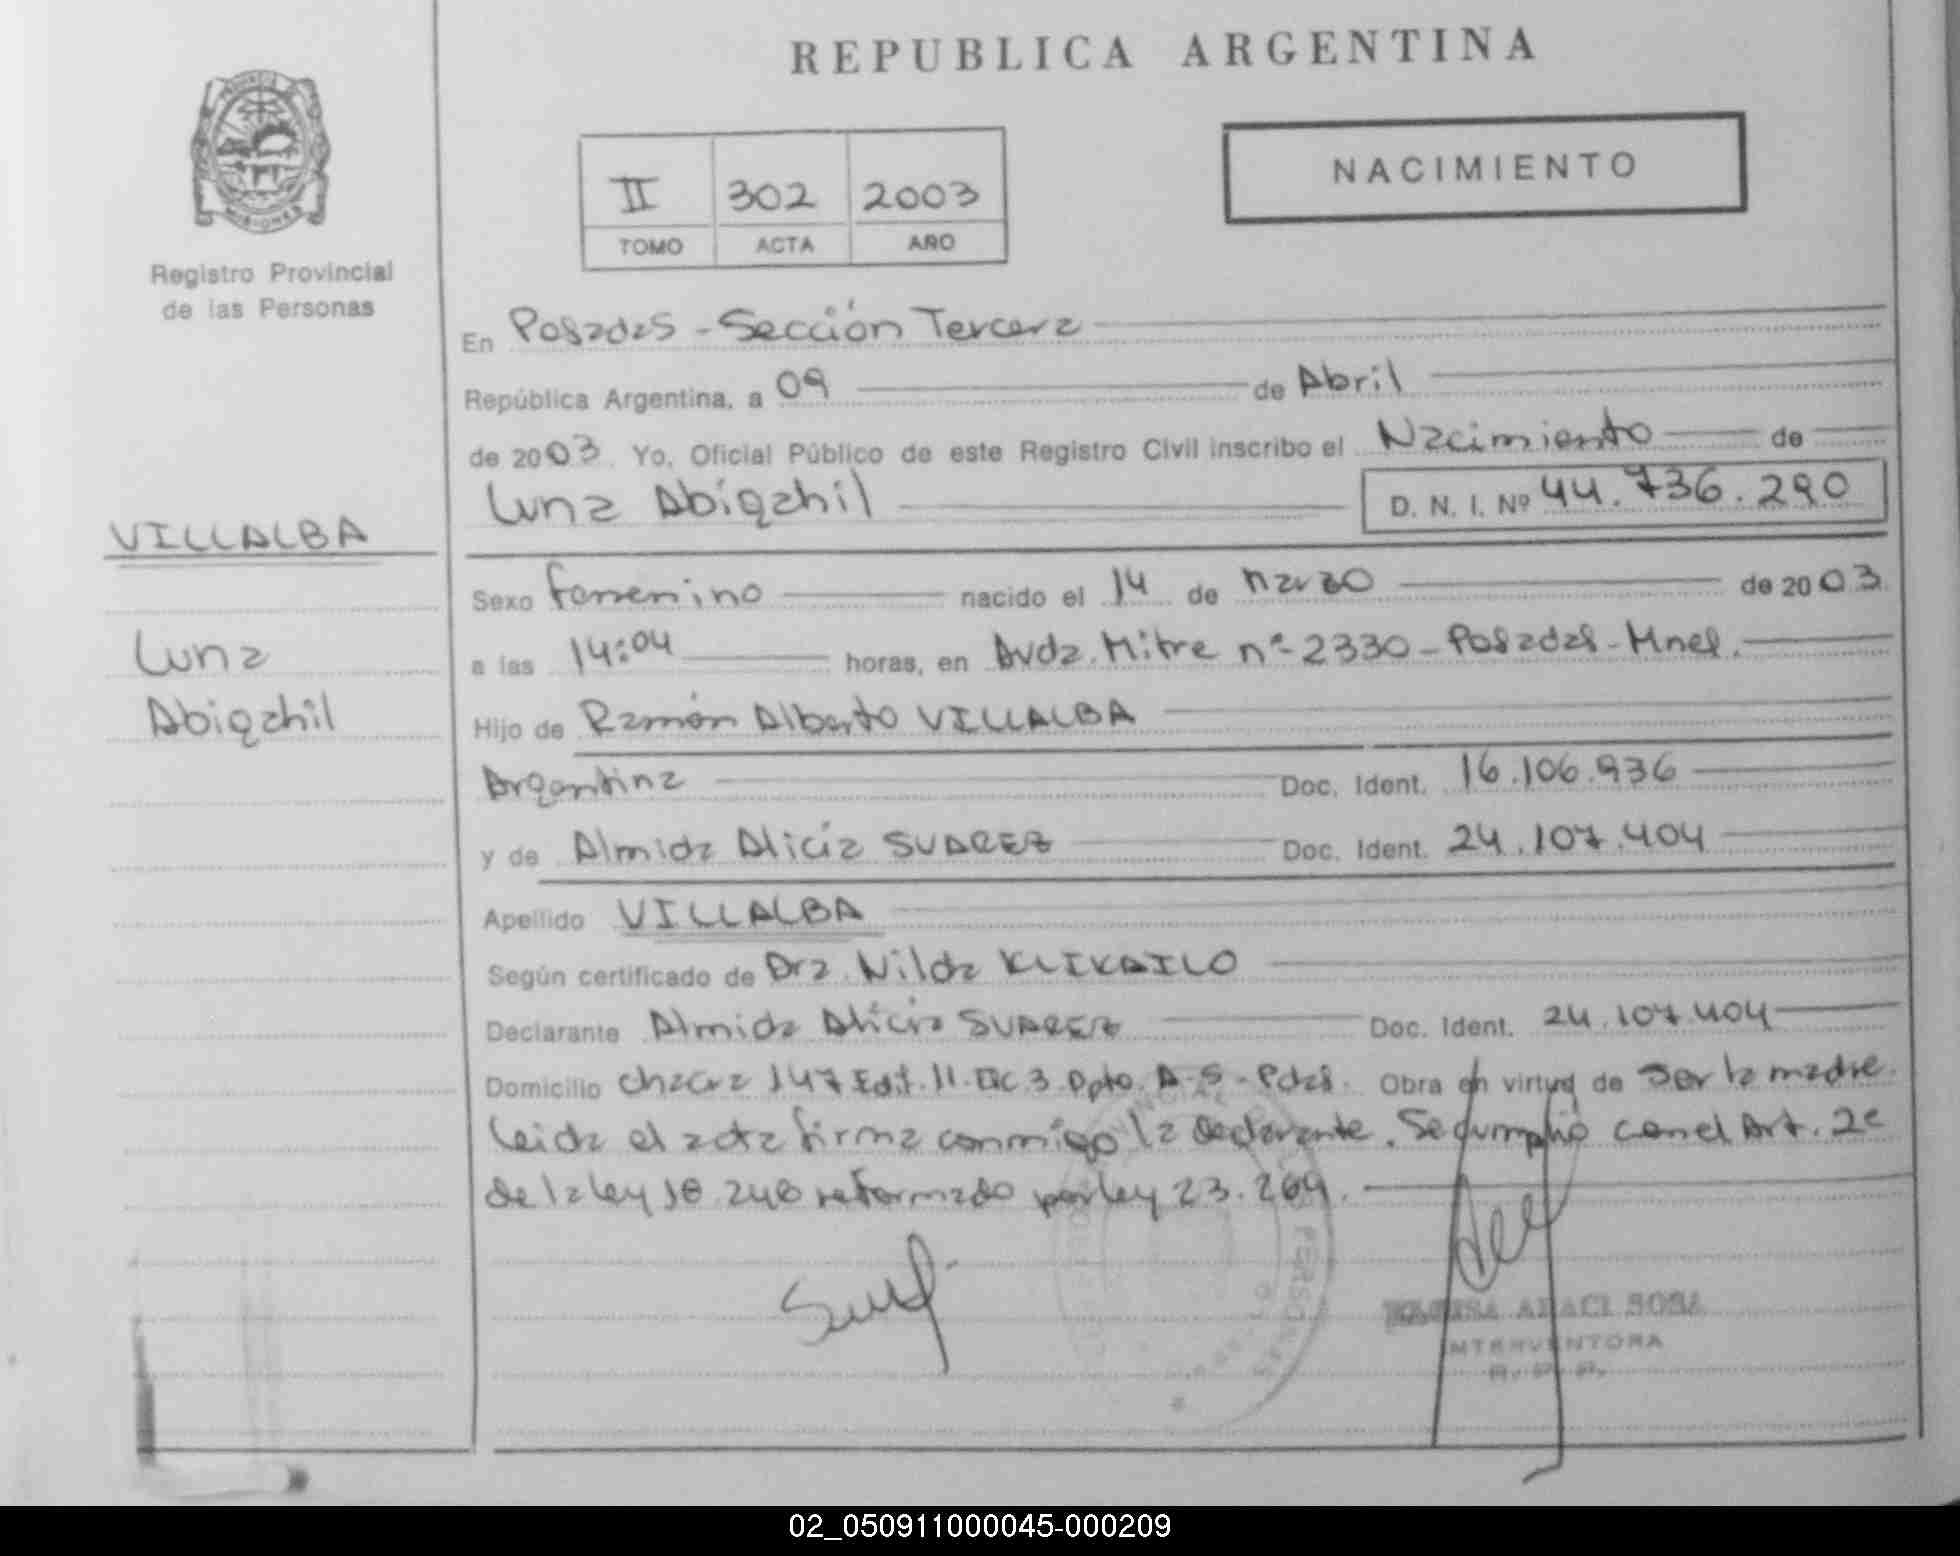 REPUBLICA ARGENTINA
NACIMIENTO
II 302 2003
TOMO ACTA AÑO
PROVINCIA
MISIONES
Registro Provincial
de las Personas
En Posadas - Sección Tercera
República Argentina, a 09 de Abril
de 2003 Yo, Oficial Público de este Registro Civil inscribo el Nacimiento de
Luna Abigahil D. N. I. Nº 44.736.290
VILLALBA
Luna
Abigahil
Sexo femenino nacido el 14 de Marzo de 2003
a las 14:04 horas, en Avda. Mitre nº 2330 - Posadas - Mnes.
Hijo de Ramón Alberto VILLALBA
Argentina Doc. Ident. 16.106.936
y de Almida Alicia SUAREZ Doc. Ident. 24.107.404
Apellido VILLALBA
Según certificado de Dra. Nilda KLIKAILO
Declarante Almida Alicia SUAREZ Doc. Ident. 24.107.404
Domicilio chacra 147 Edif. 11. Esc 3 Dpto. A-S - Pdas. Obra en virtud de ser la madre.
Leida el acta firma conmigo la declarante. Se cumplió con el Art. 2º
de la ley 18.248 reformado por ley 23.264.
PERSONAS
ARACI SOSA
INTERVENTORA
R. P. P.
02_050911000045-000209